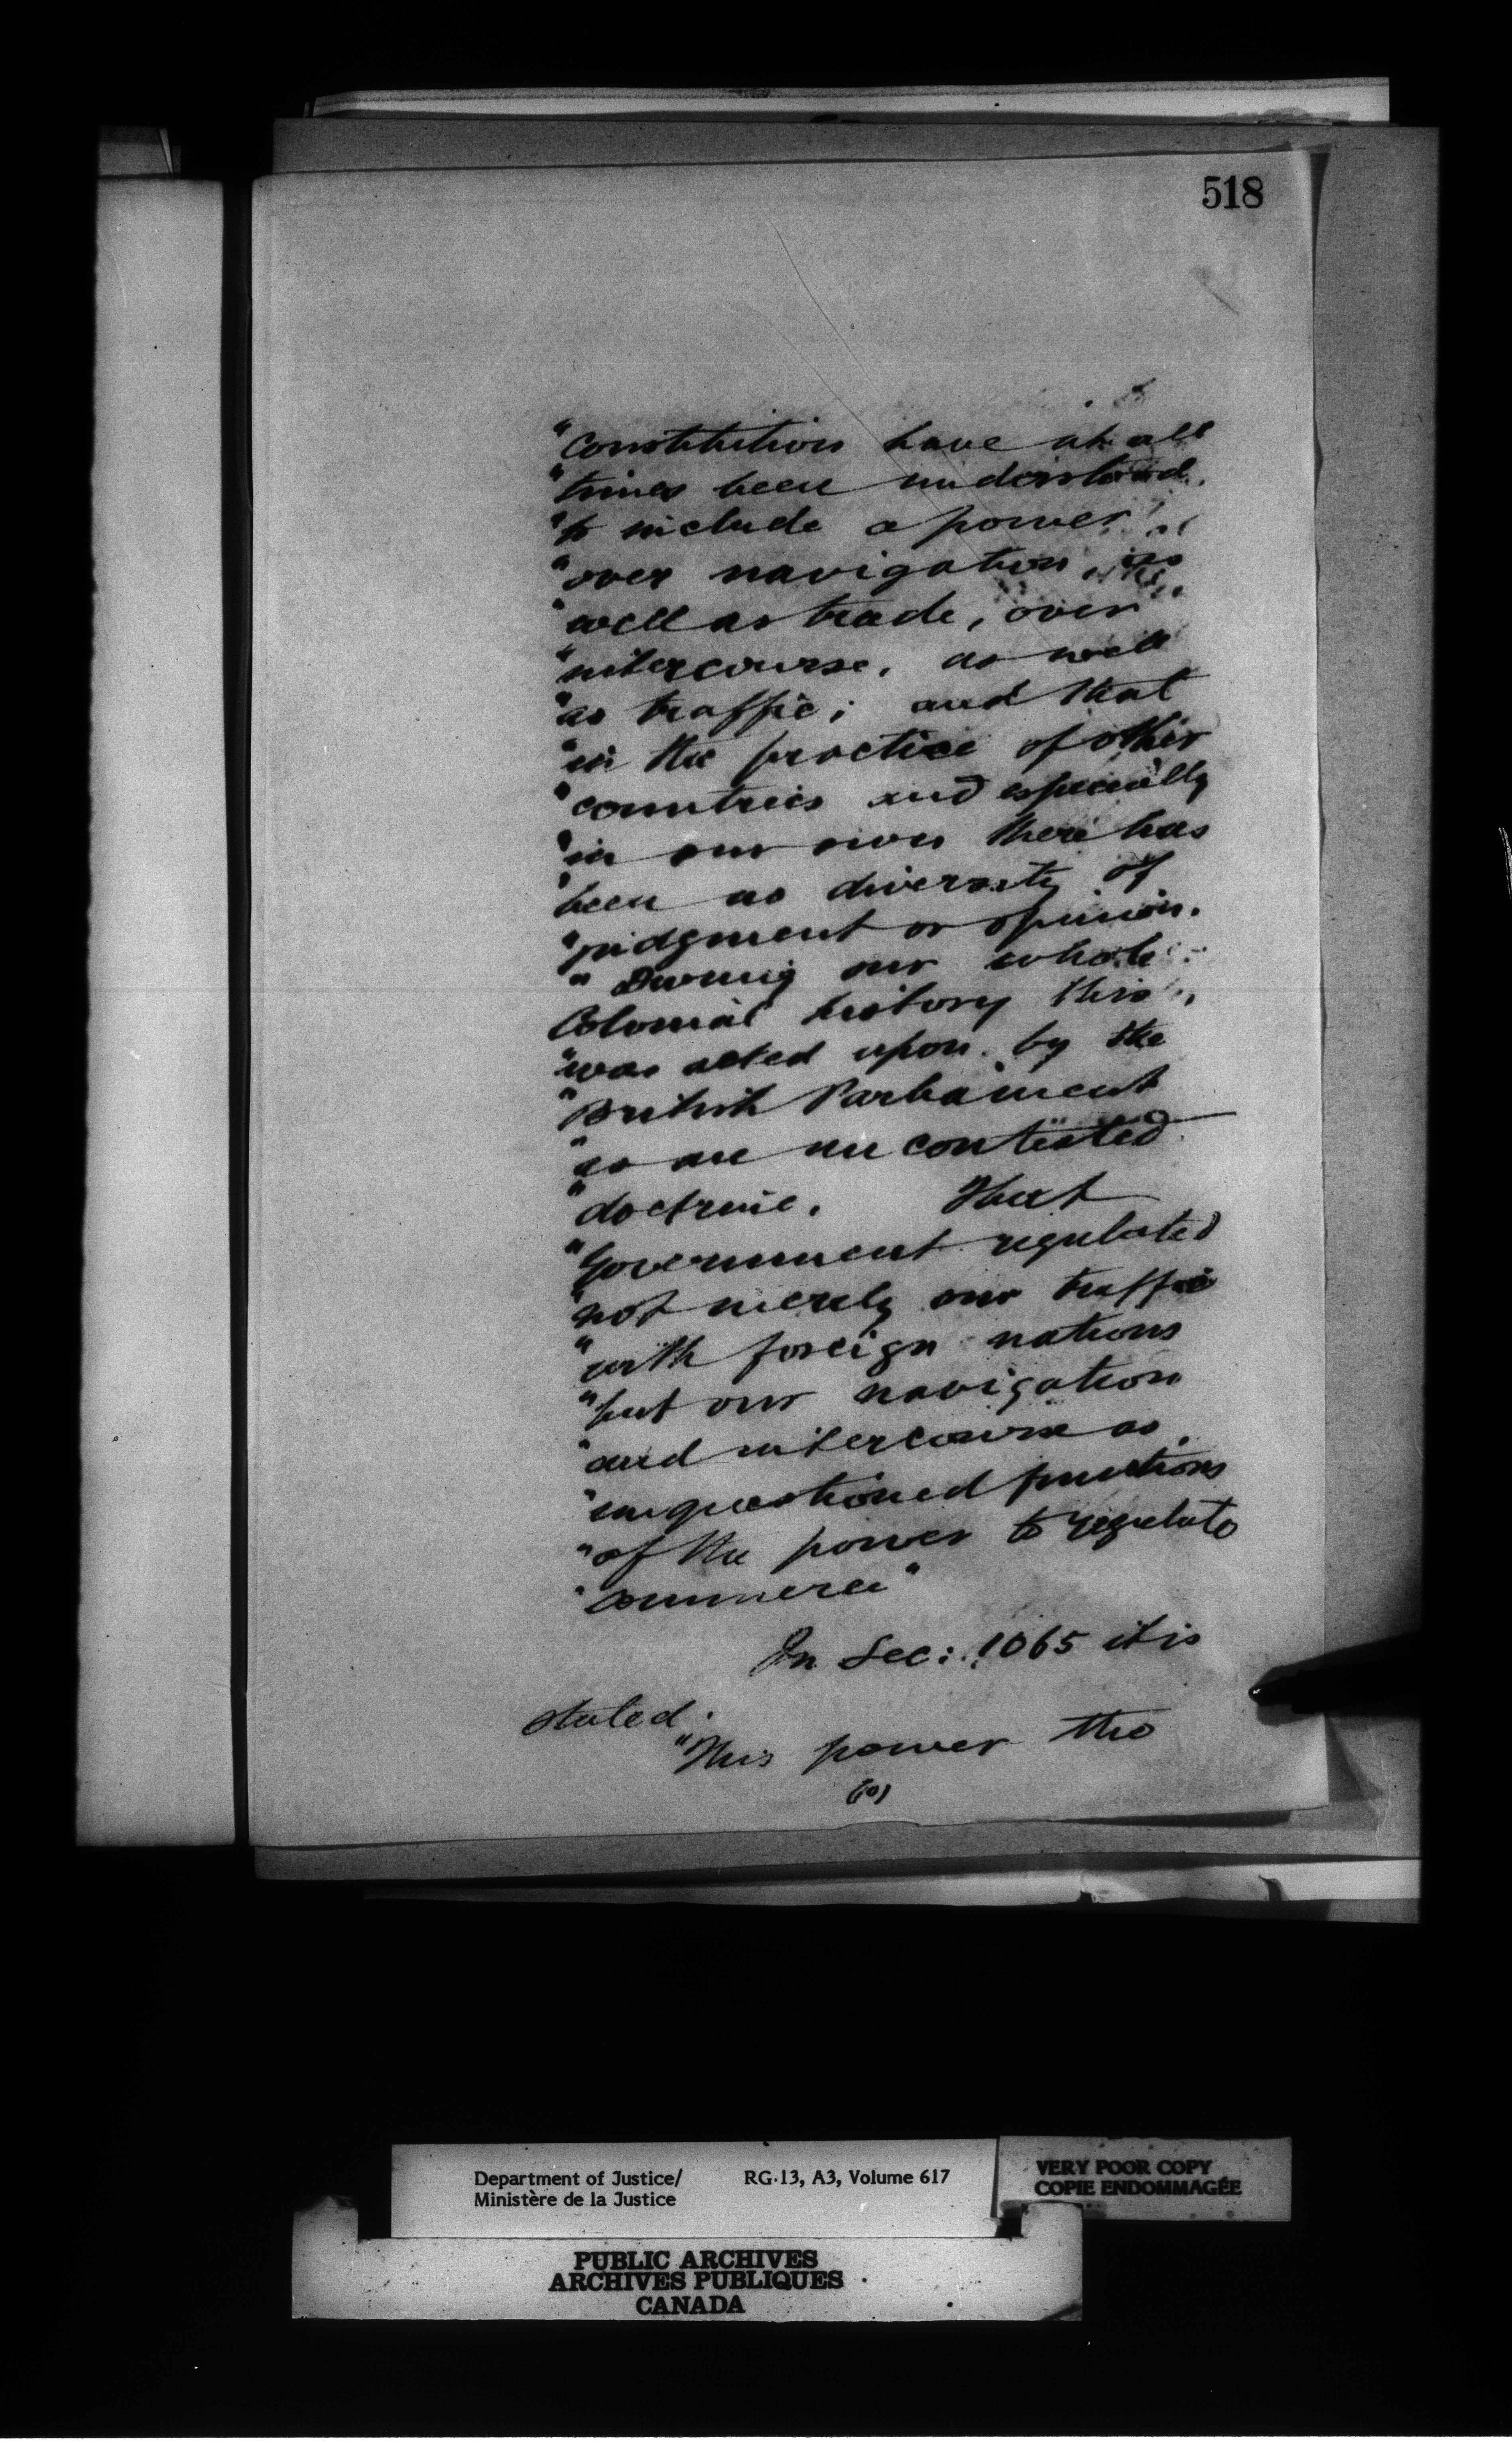 518
"Constitution have at all
"times been understood
"to include a power
"over navigation, as
"well as trade, over
"intercourse, as well
"as traffic; and that
"in the practice of other
"countries and especially
"in our own there has
"been no diversity of
"judgment or opinion.
"During our whole
Colonial history this
"was acted upon by the
"British Parliament
"as an uncontested
"doctrine. That
"Government regulated
"not merely our traffic
"with foreign nations
"but our navigation
"and intercourse as
"unquestioned functions
"of the power to regulate
"commerce"
In Sec: 1065 it is
stated.
"This power the
(10)
Department of Justice/ RG-13, A3, Volume 617
Ministère de la Justice
VERY POOR COPY
COPIE ENDOMMAGÉE
PUBLIC ARCHIVES
ARCHIVES PUBLIQUES
CANADA